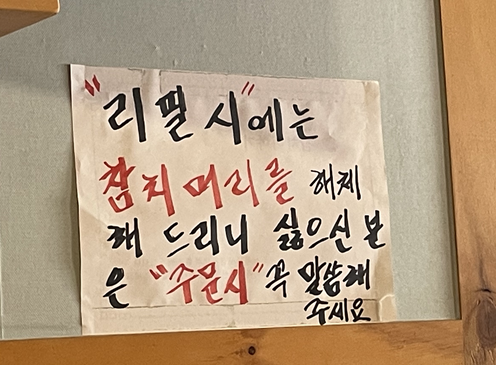 "리필 시"에는
참치 머리를 해체
해 드리니 싫으신 분
은 "주문시" 꼭 말씀해
주세요